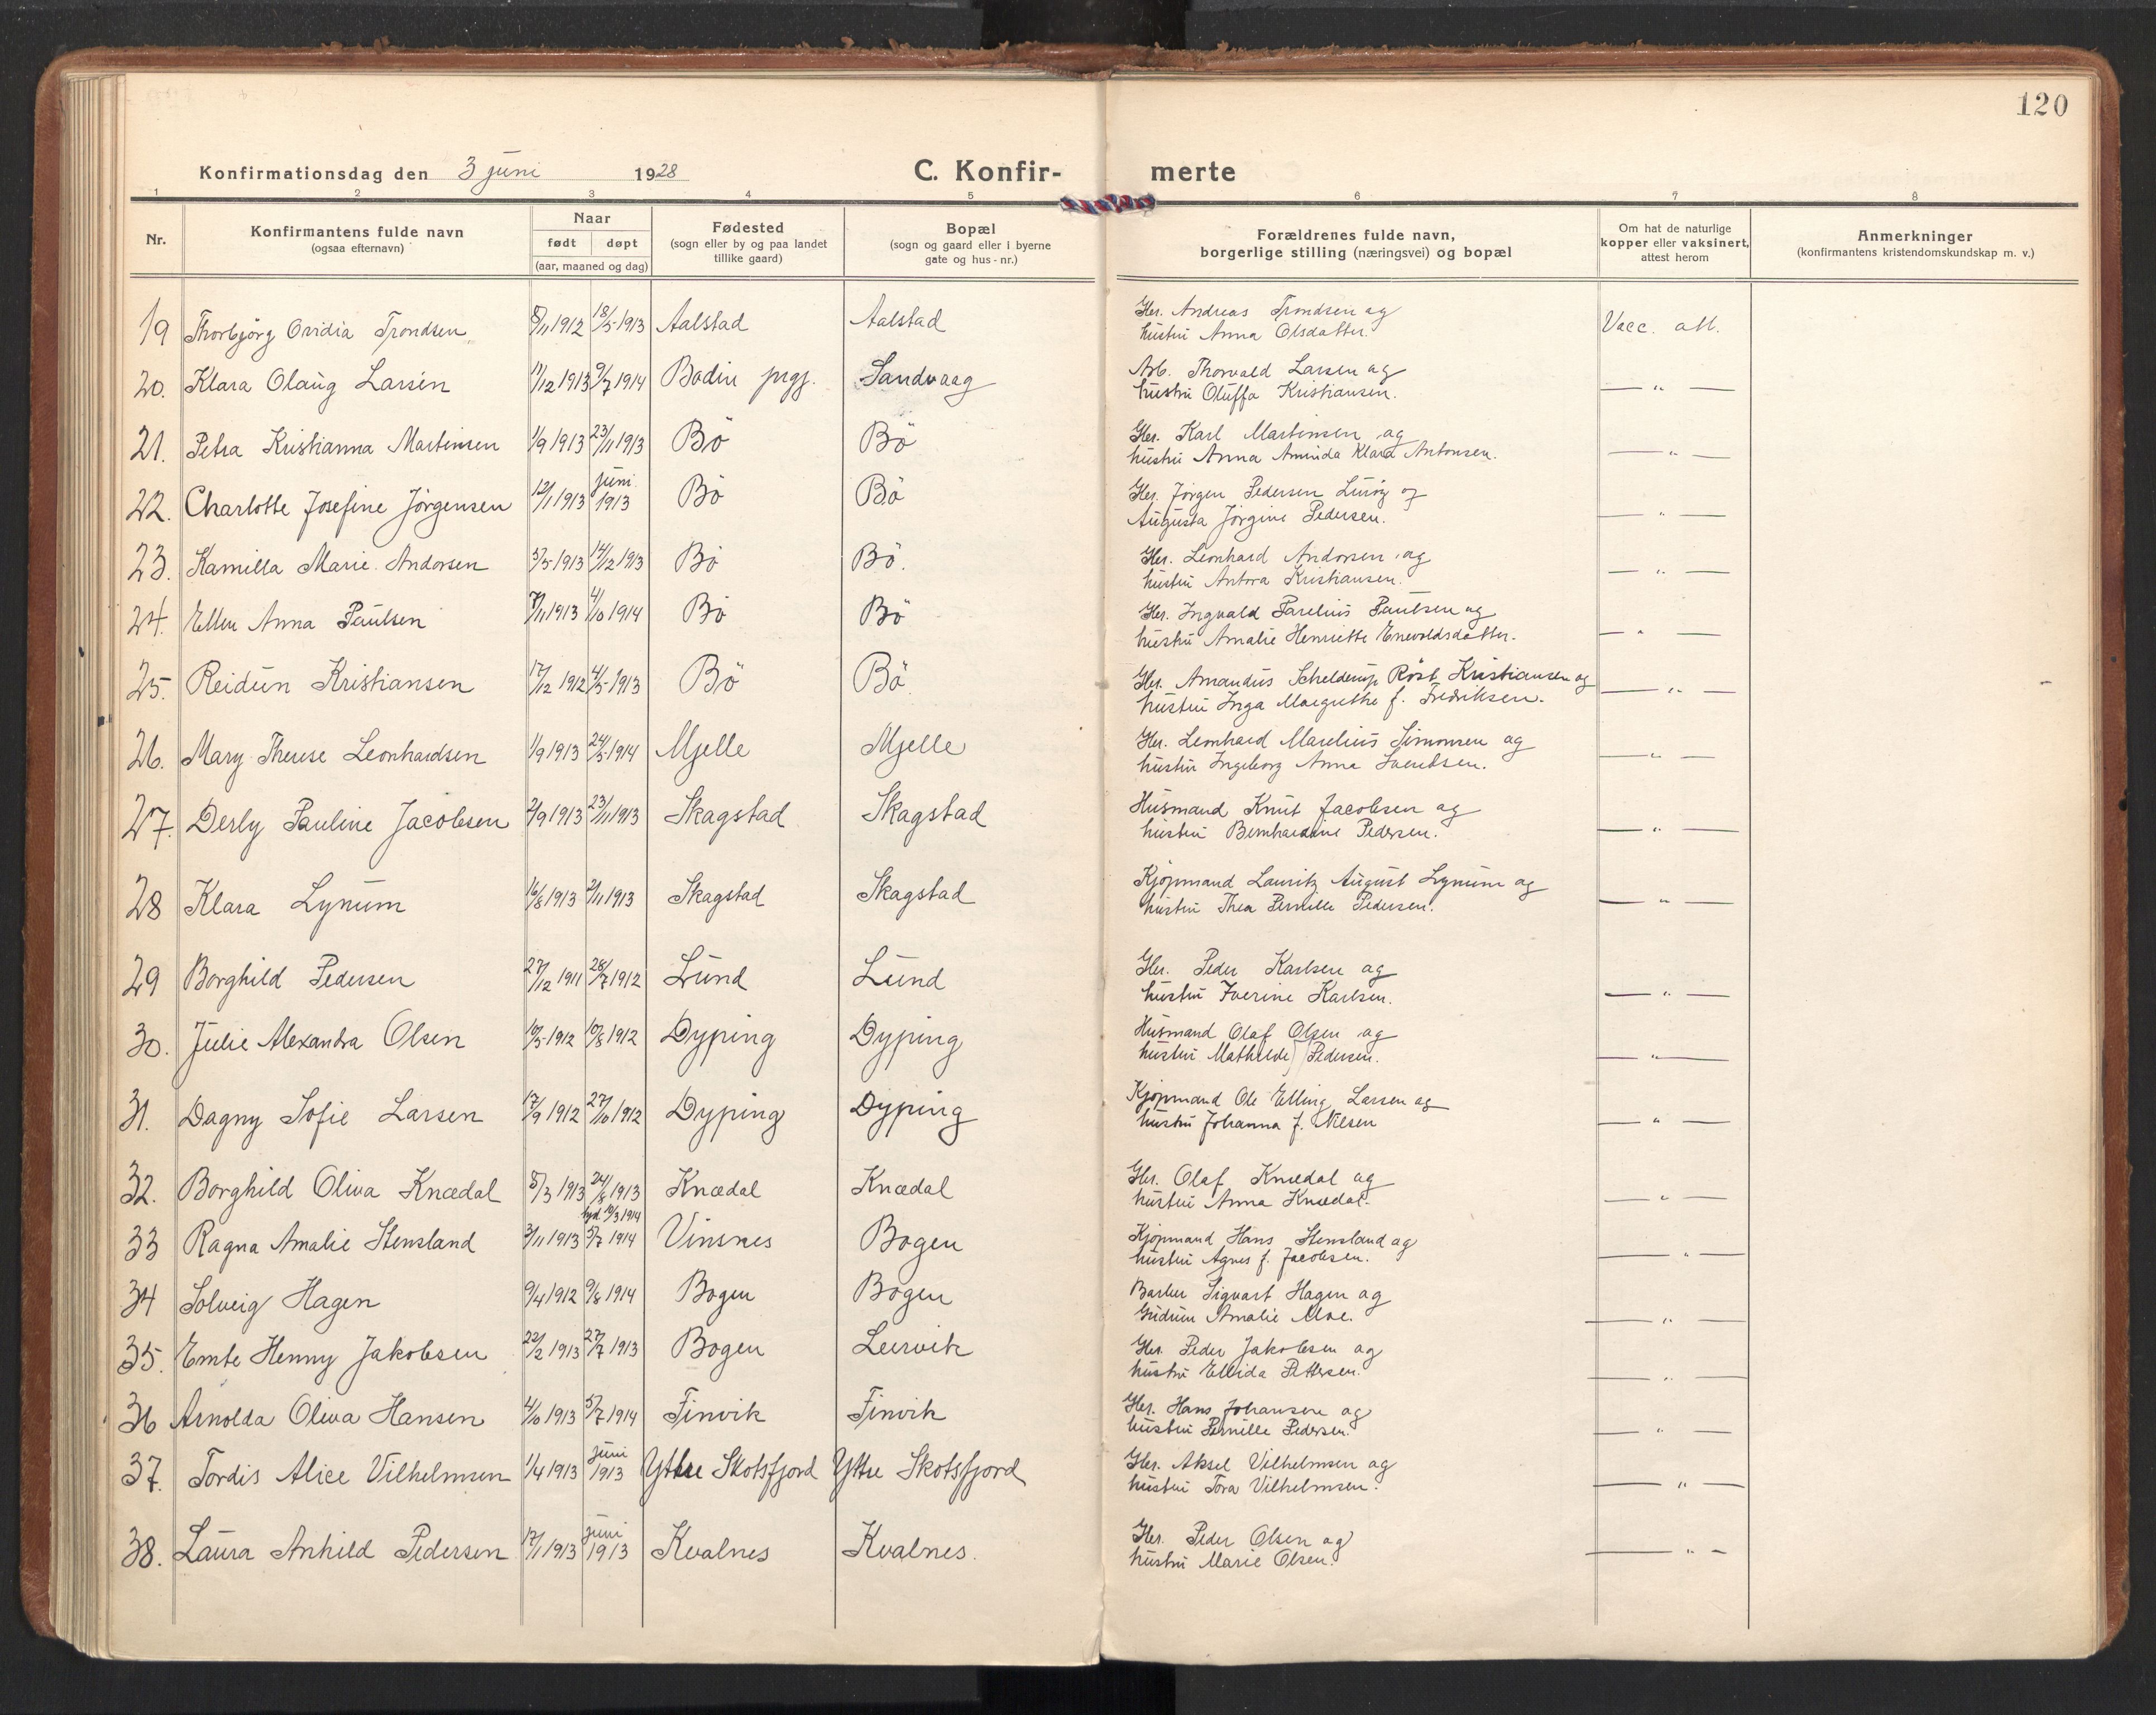 120
Konfirmationsdag den 3 juni 1928
C. Konfir-merte
1 2 3 4 5 6 7 8
Nr.
Konfirmantens fulde navn
(ogsaa efternavn)
Naar
født døpt
(aar, maaned og dag)
Fødested
(sogn eller by og paa landet
tillike gaard)
Bopæl
(sogn og gaard eller i byerne
gate og hus-nr.)
Forældrenes fulde navn,
borgerlige stilling (næringsvei) og bopæl
Om hat de naturlige
kopper eller vaksinert,
attest herom
Anmerkninger
(konfirmantens kristendomskundskap m. v.)
19 Thorbjörg Ovidia Trondsen 8/11 1912 18/5-1913 Aalstad Aalstad Gbr. Andreas Trondsen og
hustru Anna Olsdatter. Vacc. att.
20. Klara Olaug Larsen 17/12 1913 9/7 1914 Bodin prgj. Sandvaag Arb. Thorvald Larsen og
hustru Oluffa Kristiansen. — " —
21. Petra Kristianna Martinsen 1/9 1913 23/11 1913 Bö Bö Gbr. Karl Martinsen og
hustru Anna Aminda Klara Antonsen. — " —
22. Charlotte Josefine Jörgensen 12/1 1913 juni 1913 Bö Bö Gbr. Jörgen Pedersen og
Augusta Jörgine Pedersen. — " —
23. Kamilla Marie Andorsen 5/5-1913 14/12 1913 Bö Bö. Gbr. Leonhard Andorsen og
hustru Antora Kristiansen. — " —
24. Ellen Anna Paulsen 7/11 1913 4/10 1914 Bö Bö Gbr. Ingvald Parelius Paulsen og
hustru Amalie Henriette Enevoldsdatter. — " —
25. Reidun Kristiansen 17/12 1912 4/5-1913 Bö Bö Gbr. Amandus Schelderup Röst Kristiansen og
hustru Inga Margrethe f. Fredriksen. — " —
26. Mary Therese Leonhardsen 1/9 1913 24/5-1914 Mjelle Mjelle Gbr. Leonhard Marelius Simonsen og
hustru Ingeborg Anna — " —
27. Derly Pauline Jacobsen 2/9 1913 23/11 1913 Skagstad Skagstad Husmand Knut Jacobsen og
hustru Bernhardine Pedersen. — " —
28 Klara Lynum 16/8 1913 2/11 1913 Skagstad Skagstad Kjöpmand Lauritz August Lynum og
hustru Thea Pernille Pedersen. — " —
29 Borghild Pedersen 27/12 1911 28/7 1912 Lund Lund Gbr. Peder Karlsen og
hustru Iverine Karlsen. — " —
30. Julie Alexandra Olsen 10/5-1912 10/8 1912 Dyping Dyping Husmand Olaf Olsen og
hustru Mathilde Pedersen. — " —
31. Dagny Sofie Larsen 17/9 1912 27/10 1912 Dyping Dyping Kjöpmand Ole Elling Larsen og
hustru Johanna f. Nilsen — " —
32. Borghild Oliva Knædal 8/3 1913 24/8 1913 Knædal Knædal Gbr. Olaf Knædal og
hustru Anna Knædal. — " —
33 Ragna Amalie Stensland 3/11 1913 5/7 1914 Vinsnes Bogen Kjöpmand Hans Stensland og
hustru Agnes f. Jacobsen. — " —
34 Solveig Hagen 9/4 1912 9/8 1914 Bogen Bogen Barber Sigvart Hagen og
Gudrun Amalie Moe. — " —
35. Emte Henny Jakobsen 22/2 1913 27/7 1913 Bogen Leirvik Gbr. Peder Jakobsen og
hustru Ellida Pettersen. — " —
36 Arnolda Oliva Hansen 4/10 1913 5/7 1914 Finvik Finvik Gbr. Hans Johansen og
hustru Pernille Pedersen. — " —
37. Tordis Alice Vilhelmsen 1/4 1913 juni 1913 Yttre Skotsfjord Yttre Skotsfjord Gbr. Aksel Vilhelmsen og
hustru Tora Vilhelmsen. — " —
38. Laura Anhild Pedersen 17/1 1913 juni 1913 Kvalnes Kvalnes. Gbr. Peder Olsen og
hustru Marie Olsen. — " —